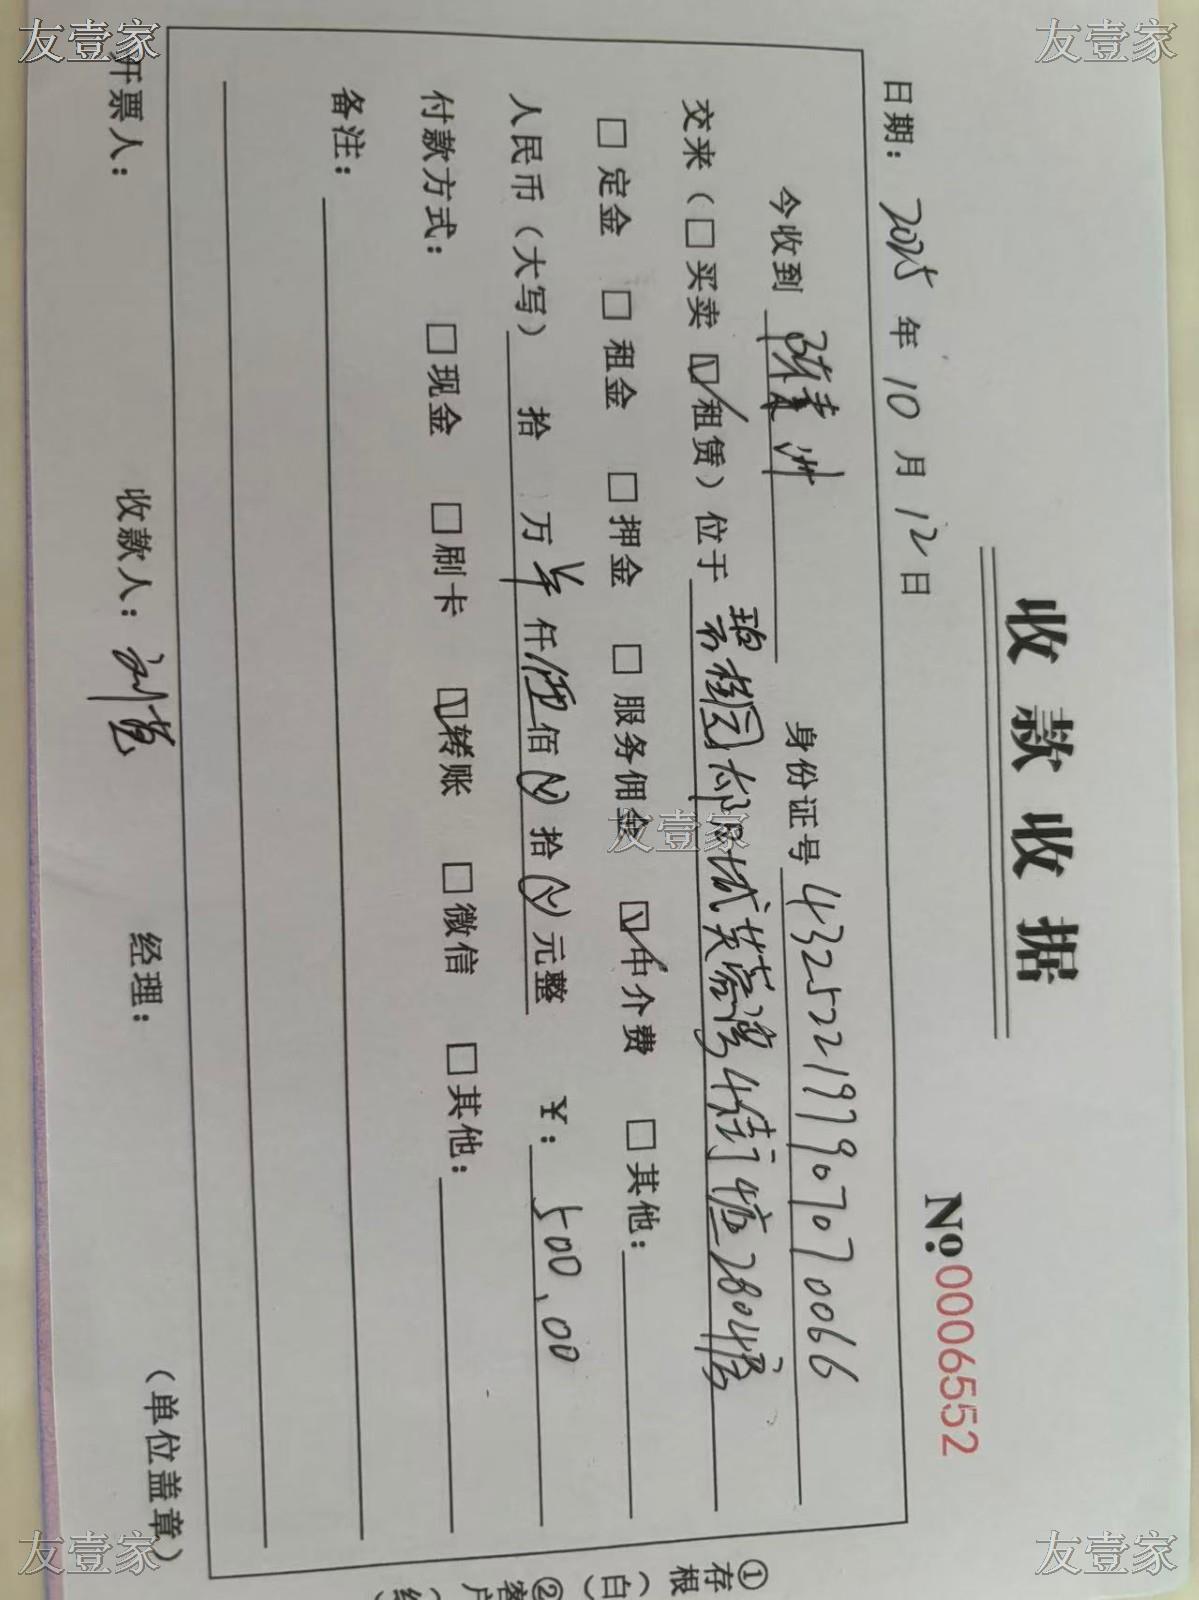 收款收据
No.0006552
日期：2025年10月12日
今收到 身份证号 432522197907070066
交来（□买卖 ☑租赁）位于 碧桂园 城芙蓉湾4街 座2804房
□定金 □租金 □押金 □服务佣金 ☑中介费 □其他：
人民币（大写） 拾 万 仟伍佰 拾 元整 ¥：500.00
付款方式： □现金 □刷卡 ☑转账 □微信 □其他：
备注：
开票人： 收款人：刘 经理： （单位盖章）
①存根（白）
②客户
友壹家
友壹家
友壹家
友壹家
友壹家